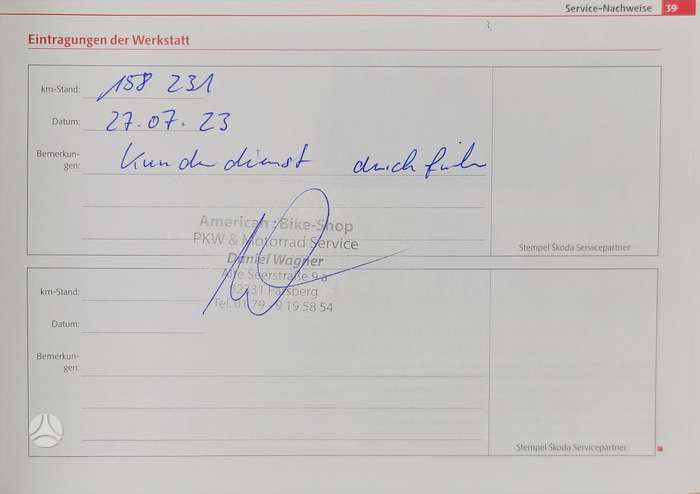 Service-Nachweise 39
Eintragungen der Werkstatt
km-Stand: 158 231
Datum: 27.07.23
Bemerkun-
gen: Kundendienst durchführ
American : Bike-Shop
PKW & Motorrad Service
Daniel Wagner
Alte Seerstraße 9 a
92331 Parsberg
Tel. 01 79 - 9 19 58 54
Stempel Škoda Servicepartner
km-Stand:
Datum:
Bemerkun-
gen:
Stempel Škoda Servicepartner